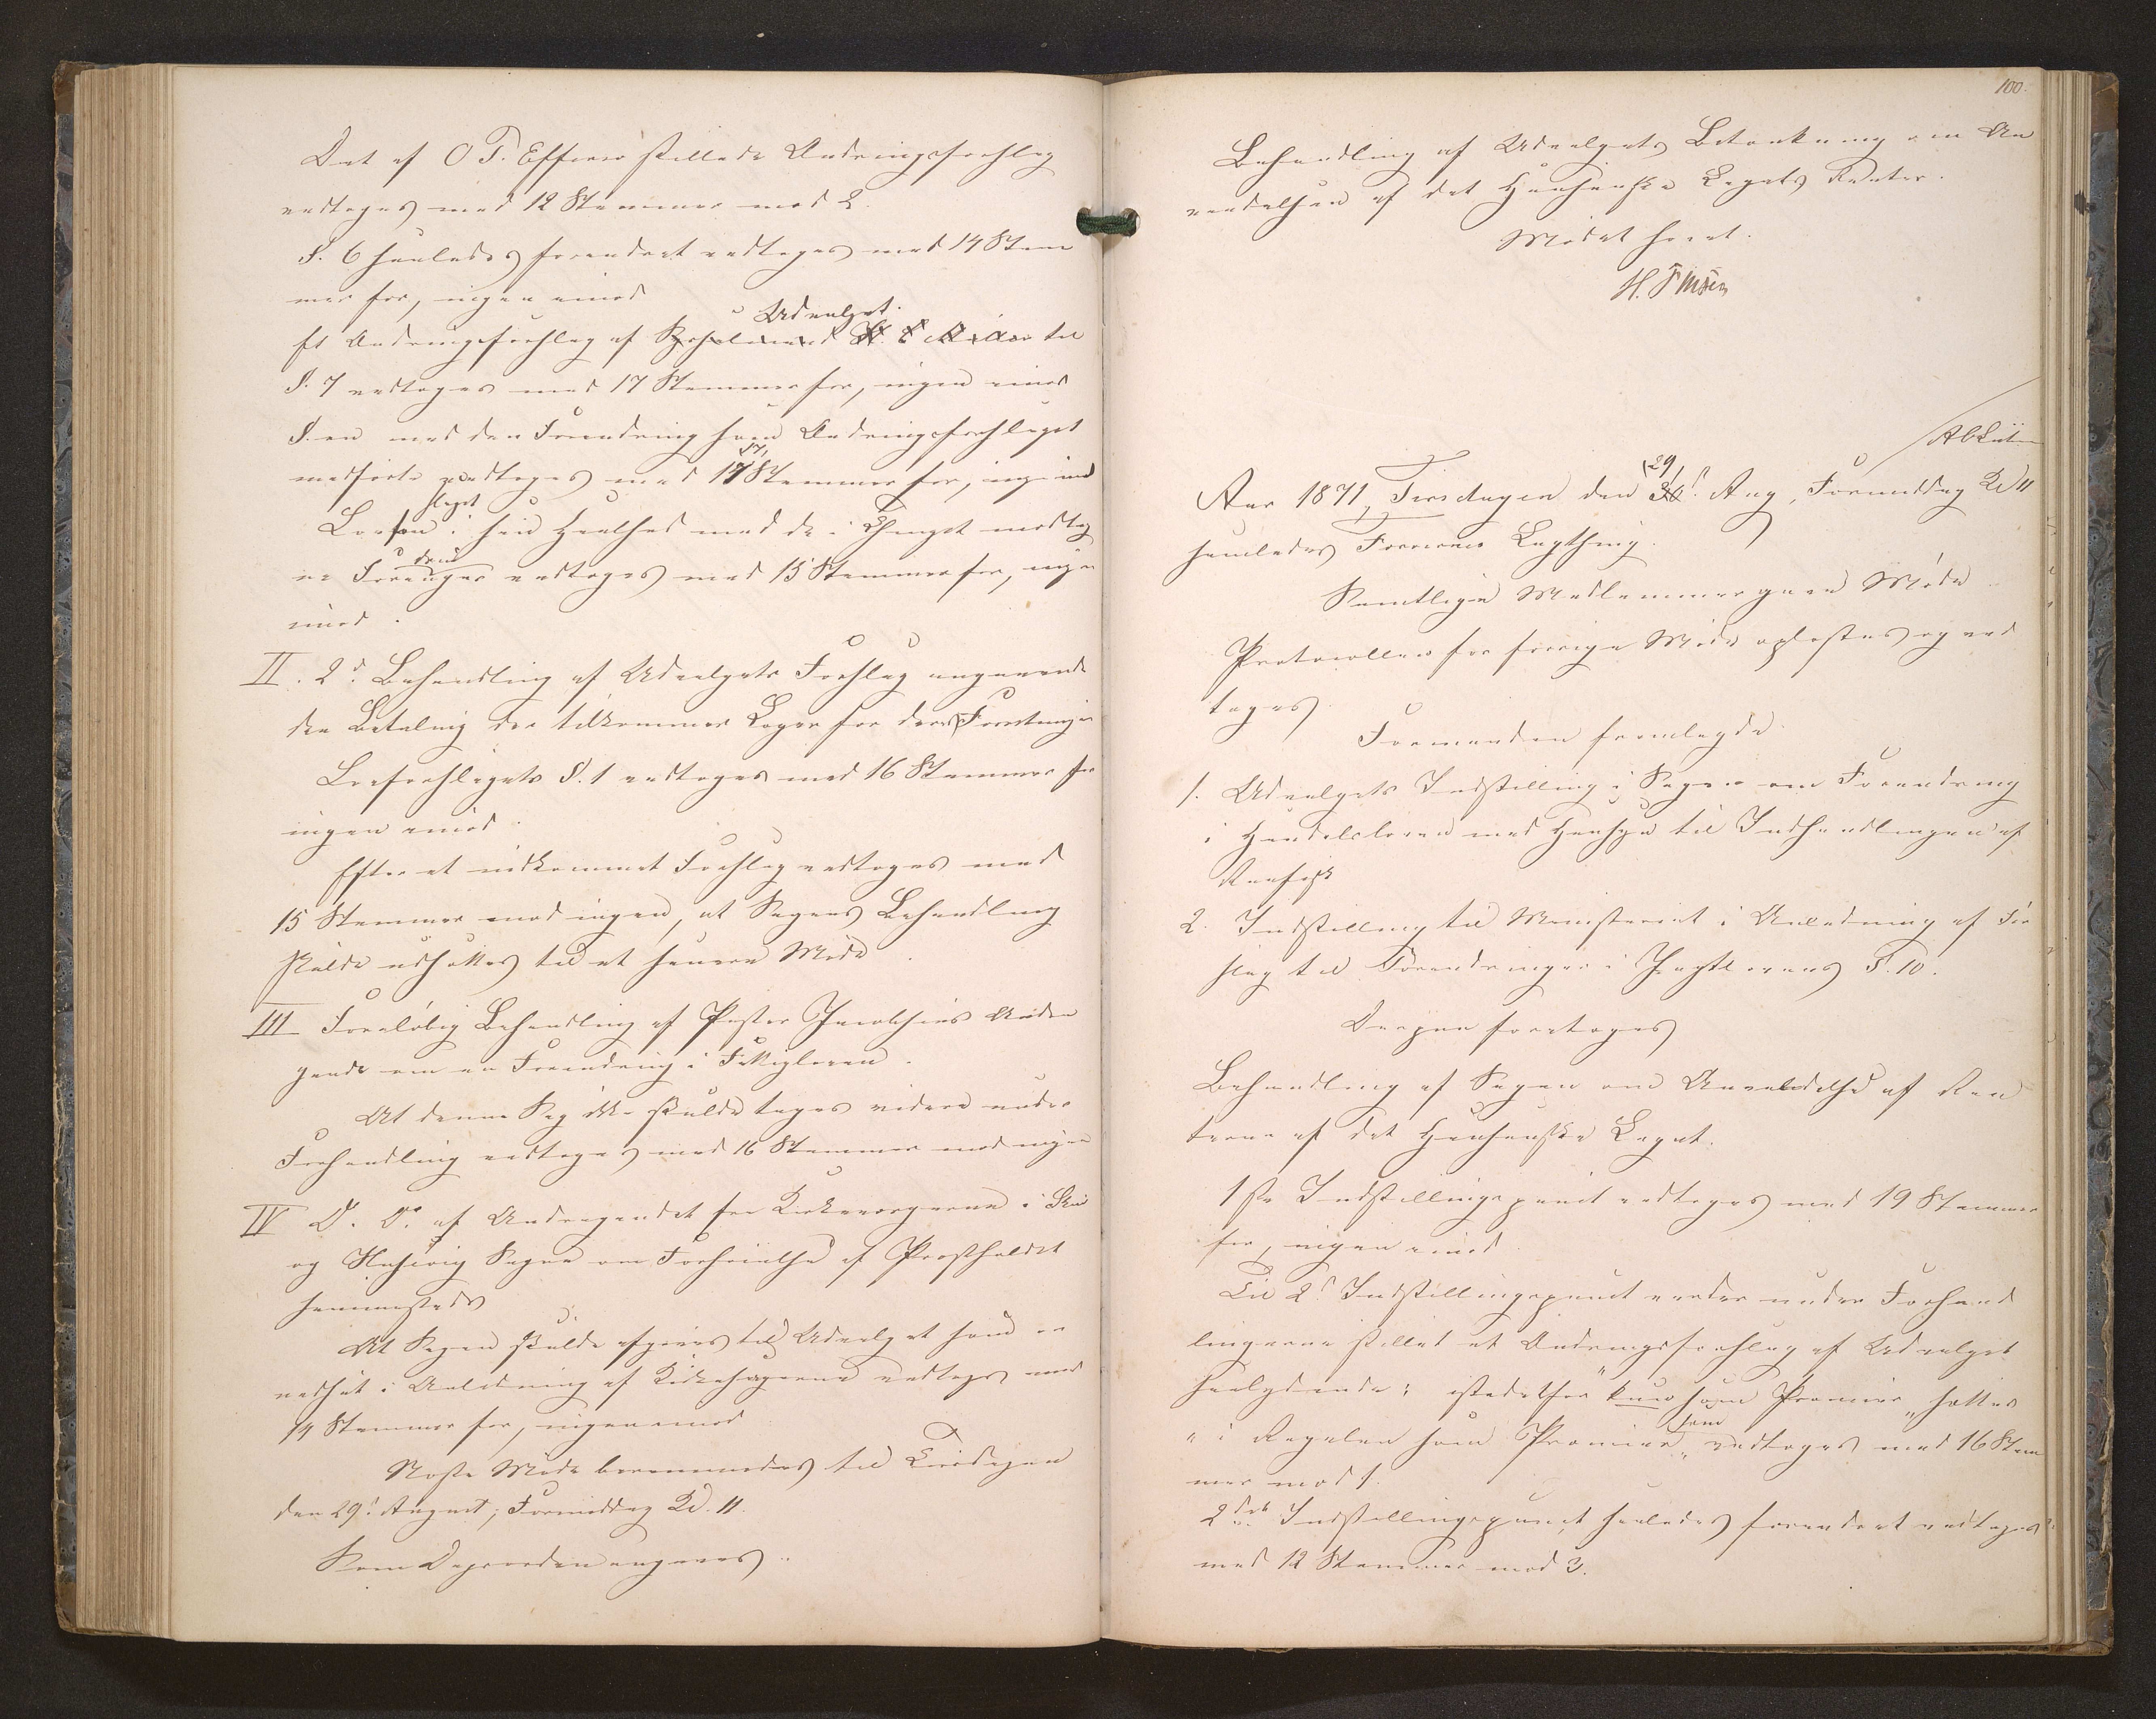 Det af O. P. Effersø stillede Ændringsforslag
vedtoges med 12 Stemmer mod 2.
§. 6 saaledes forandret vedtoges med 14 Stem
mer for, ingen imod
Udvalget.
Et Ændringsforslag af til
§. 7 vedtoges med 17 Stemmer for, ingen imod
§.en med den Forandring som Ændringsforslaget
17,
medførte vedtoges med Stemmer for, ingen imod
slaget
Lovfor i sin Heelhed med de i Thinget vedtag
drin
ne Foranger vedtoges med 15 Stemmer for, ingen
imod.
II. 2d. Behandling af Udvalgets Forslag angaaende
den Betaling der tilkommer Læger for deres Forretninger
Lovforslagets §. 1 vedtoges med 16 Stemmer for
ingen imod.
Efter et indkommet Forslag vedtoges med
15 Stemmer mod ingen, at Sagens Behandling
skulde udsættes til et senere Møde.
III Foreløbig Behandling af Pastor Andra
gende om en Forandring i Fattigloven.
At denne Sag ikke skulde tages videre under
Forhandling vedtoges med 16 Stemmer mod ingen
IV D. D. af Andragendet fra Kirkeværgerne i
og Husevig Sogne om af Præsteholdet
sammesteds
At Sagen skulde afgives til Udvalget som er
nedsat i Anledning af Kirkesagerne vedtoges med
14 Stemmer for, ingen imod
Næste Møde berammedes til Tirsdagen
den 29d. August, Formiddag Kl. 11.
Som Dagsorden angaves:
100.
Behandling af Udvalgets Betænkning om An
vendelsen af det Legats Renter.
Mødet hævet.
H. Finsen
Aar 1871, Tirsdagen den 29 Aug, Formiddag Kl 11
samledes Færøernes Lagthing.
Samtlige Medlemmer gave Møde.
Protocollen for forrige Møde oplæstes og ved
toges.
Formanden fremlagde
1. Udvalgets Indstilling i Sagen om Forandring
i Handelsloven med Hensyn til Indhandlingen af
Raafisk
2. Indstilling til Ministeriet i Anledning af For
slag til Forandringer i Jagtlovens §. 10.
Derpaa foretoges
Behandling af Sagen om Anvendelse af Ren
terne af det Legat.
1ste Indstillingspunct vedtoges med 19 Stemmer
for, ingen imod.
Til 2d. Indstillingspunct under Forhand
lingerne stillet et Ændringsforslag af Udvalget
saalydende: istedetfor "kun som Præmier" sættes
som
"i Regelen som Præmier" vedtoges med 16 Stem
mer mod 1.
2det Indstillingspunct saaledes forandret vedtoges
med 12 Stemmer mod 3.